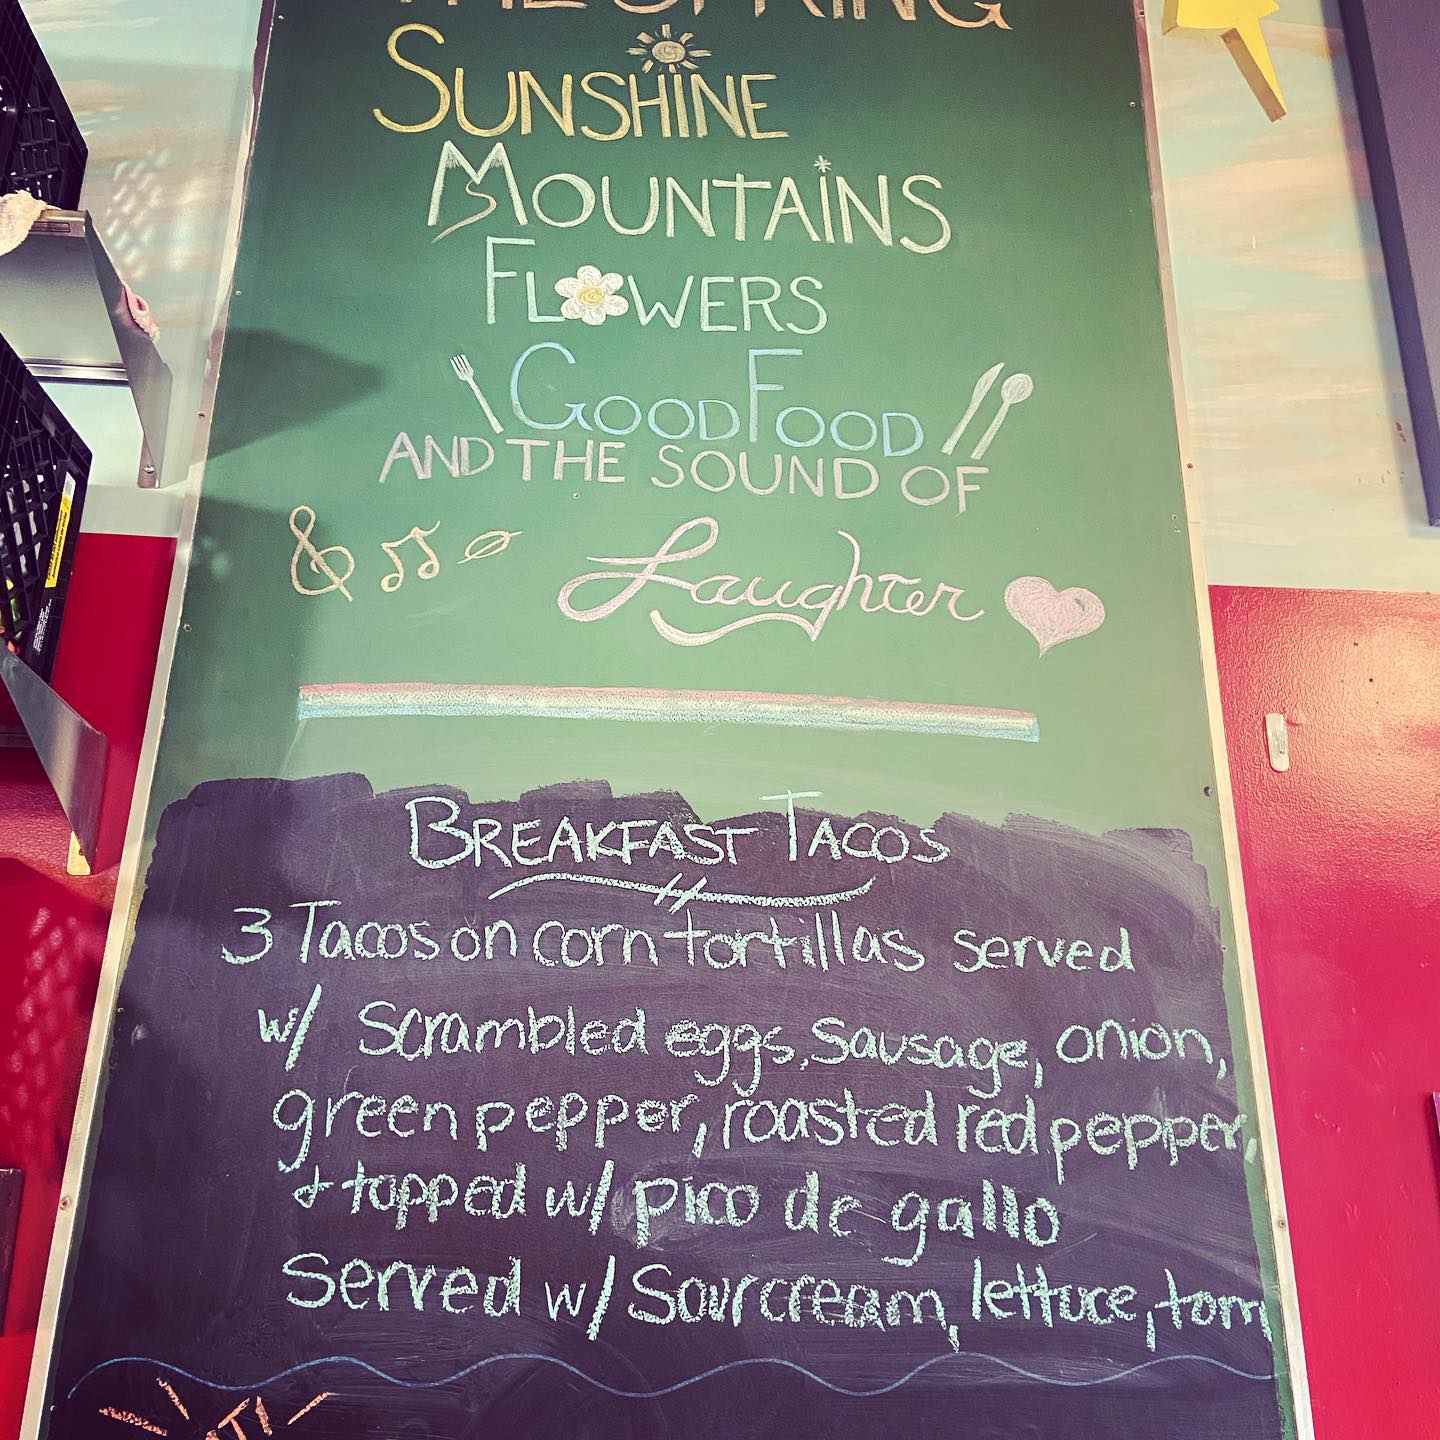 THE SPRING
SUNSHINE
MOUNTAINS
FLOWERS
GOOD FOOD
AND THE SOUND OF
Laughter
BREAKFAST TACOS
3 Tacos on corn tortillas served
w/ Scrambled eggs, Sausage, onion,
green pepper, roasted red pepper,
& topped w/ pico de gallo
Served w/ Sour cream, lettuce, tom